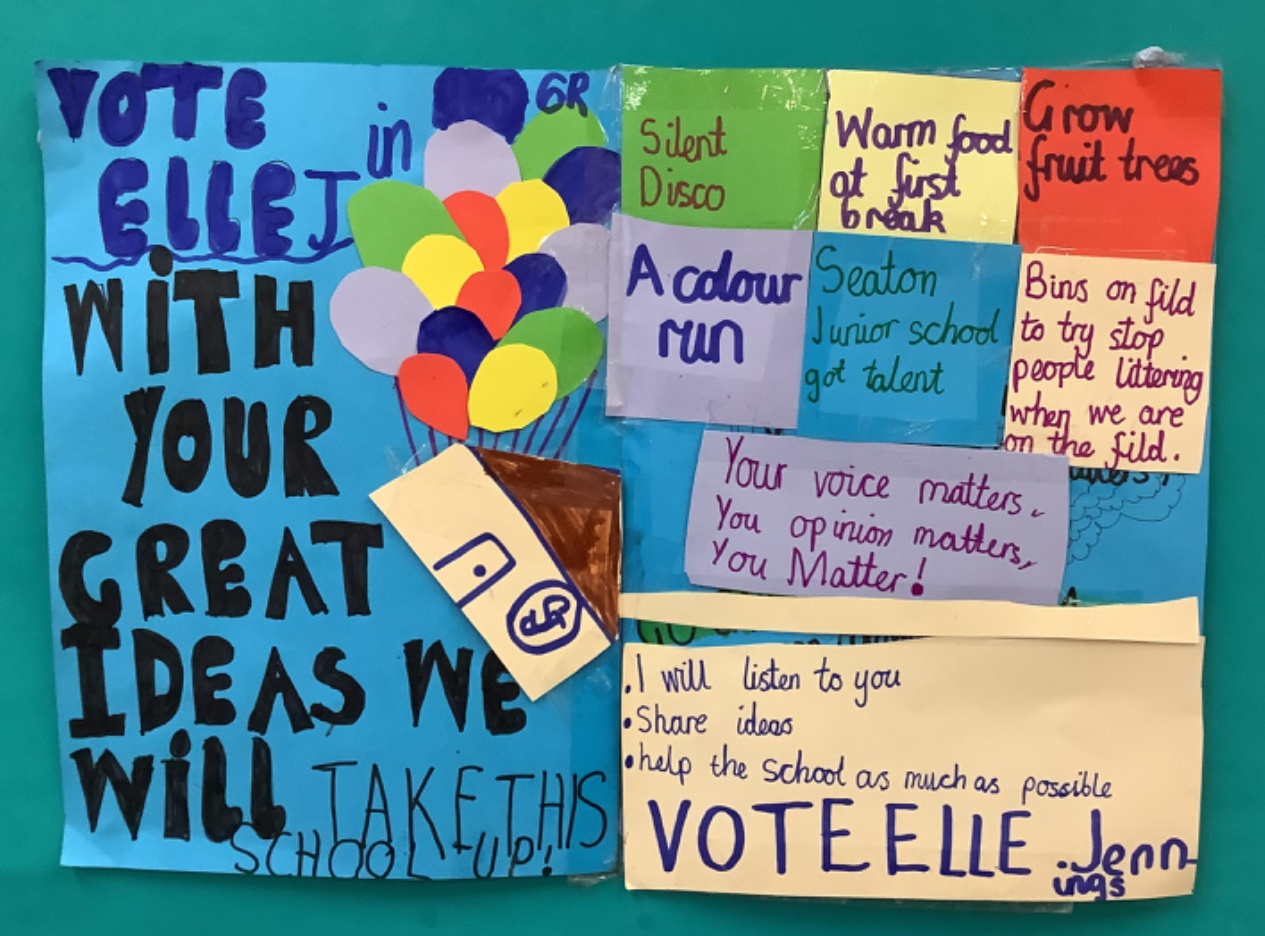 VOTE
ELLEJ
in
6R
WiTH
YOUR
GREAT
IDEAS WE
WiLL TAKE THIS
SCHOOL UP!
Silent
Disco
Warm food
at first
break
Grow
fruit trees
A colour
run
Seaton
Junior school
got talent
Bins on fild
to try stop
people littering
when we are
on the fild.
Your voice matters,
You opinion matters,
You Matter!
.I will listen to you
•Share ideas
•help the school as much as possible
VOTE ELLE Jenn-
ings